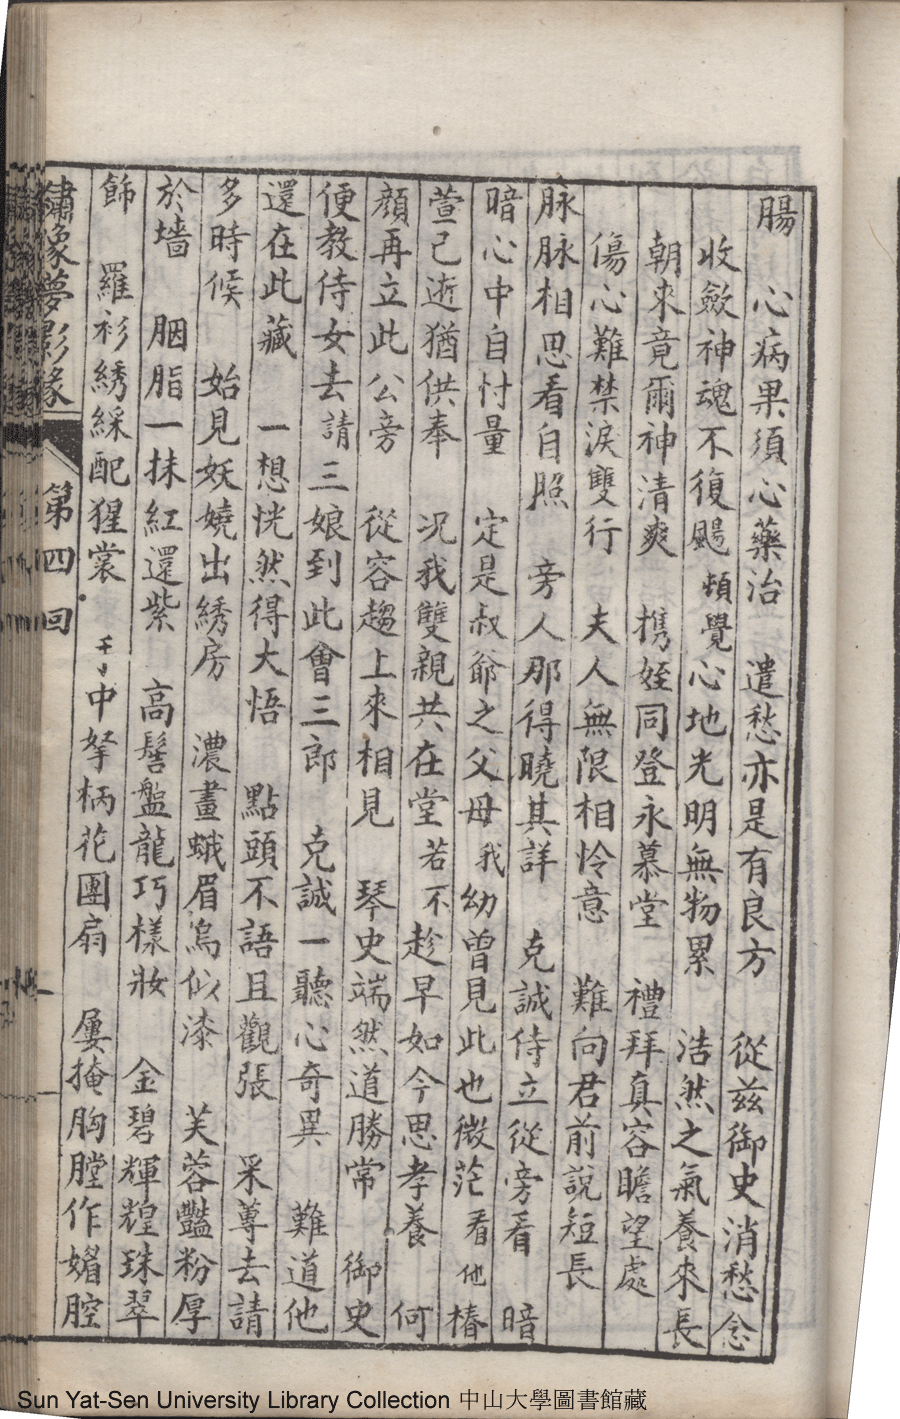 腸　心病果須心藥治　遣愁亦是有良方　從茲御史消愁念
收斂神魂不復颺　頓覺心地光明無物累　浩然之氣養來長
朝來竟爾神清爽　携姪同登永慕堂　禮拜真容瞻望處
傷心難禁淚雙行　夫人無限相怜意　難向君前說短長
脉脉相思看自照　旁人那得曉其詳　克誠侍立從旁看　暗
暗心中自忖量　定是叔爺之父母　我幼曾見此也微茫　看他椿
萱已逝猶供奉　况我雙親共在堂　若不趁早如今思孝養　何
顔再立此公旁　從容趨上來相見　琴史端然道勝常　御史
便教侍女去請三娘到此會三郎　克誠一聽心奇異　難道他
還在此藏　一想恍然得大悟　點頭不語且觀張　采蕁去請
多時候　始見妖嬈出綉房　濃畫蛾眉烏似漆　芙蓉豔粉厚
於墻　胭脂一抹紅還紫　高髻盤龍巧樣妝　金碧輝煌珠翠
飾　羅衫綉綵配猩裳　手中拏柄花團扇　屢掩胸膛作媚腔
繡像夢影緣　第四回
Sun Yat-Sen University Library Collection 中山大學圖書館藏